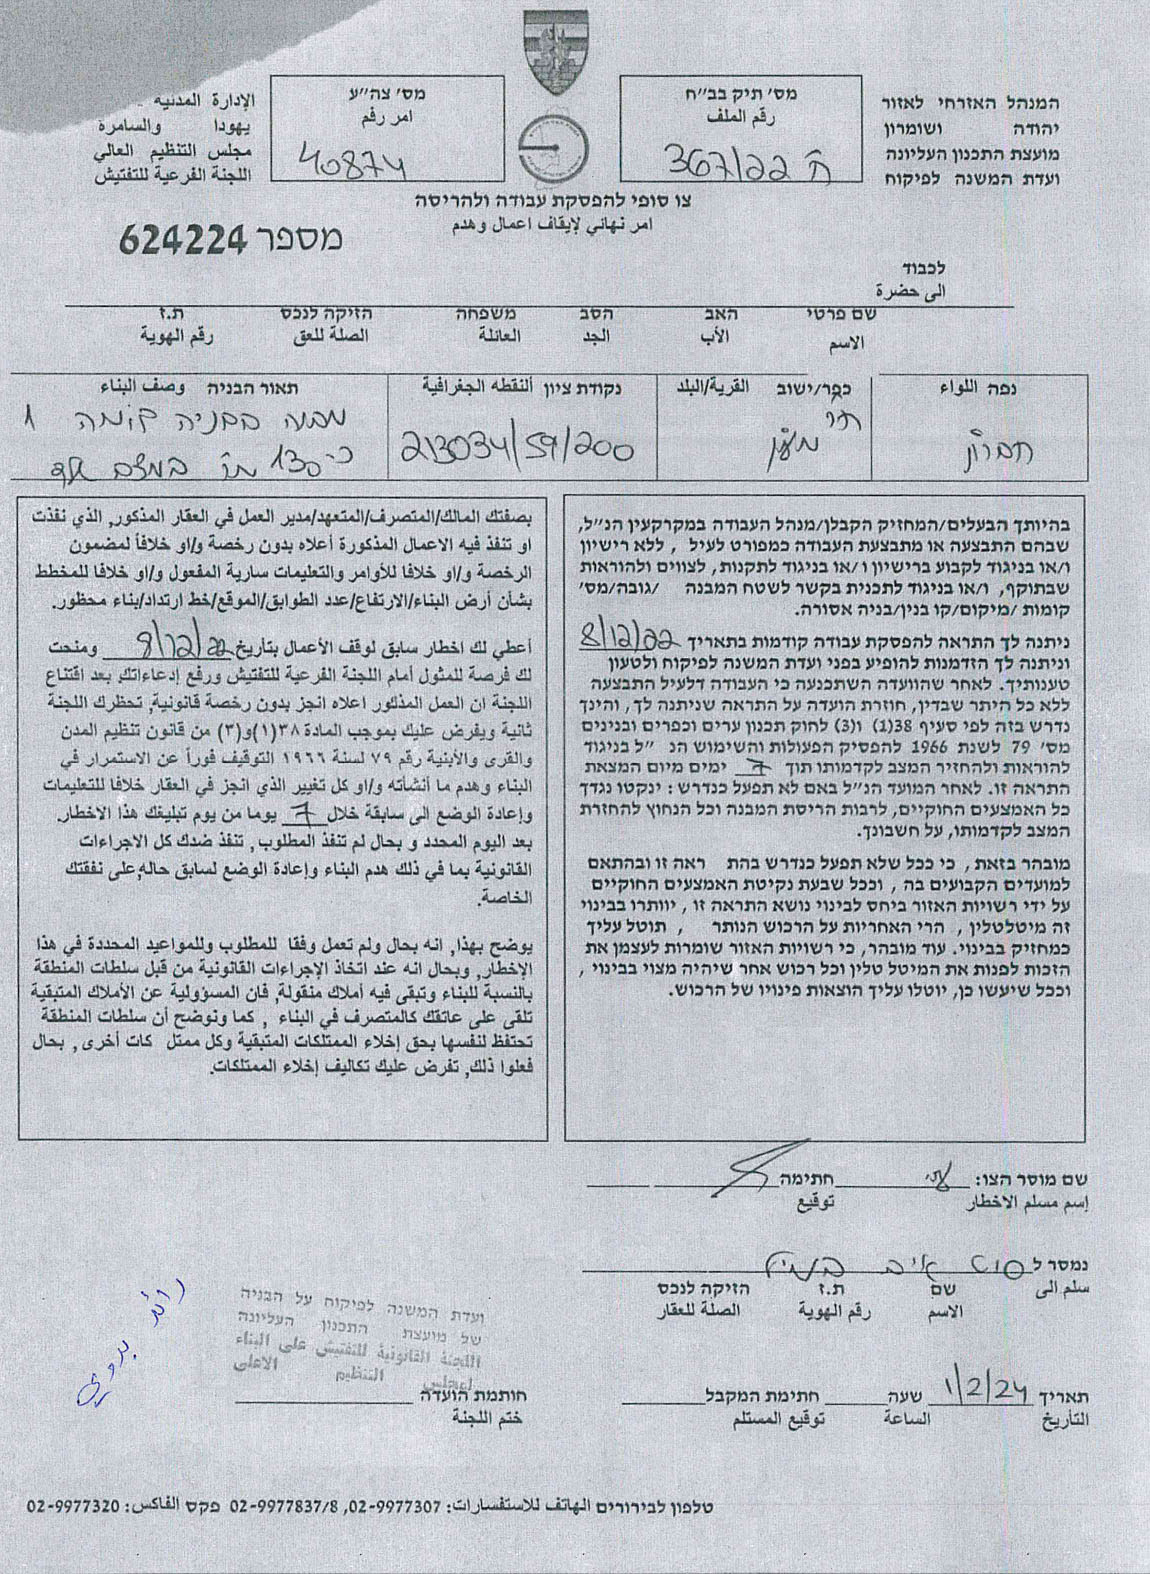 המנהל האזרחי לאזור
יהודה ושומרון
מועצת התכנון העליונה
ועדת המשנה לפיקוח
מס' תיק בב"ח
رقم الملف
ח 367/22
מס' צה"ע
امر رقم
40874
الإدارة المدنية
يهودا والسامرة
مجلس التنظيم العالي
اللجنة الفرعية للتفتيش
צו סופי להפסקת עבודה ולהריסה
امر نهائي لإيقاف اعمال وهدم
מספר 624224
לכבוד
الى حضرة
שם פרטי האב הסב משפחה הזיקה לנכס ת.ז
الاسم الأب الجد العائلة الصلة للعق رقم الهوية
נפה اللواء
חברון
כפר/ישוב القرية/البلد
מעין
נקודת ציון ألنقطه الجغرافية
213034/59/200
תאור הבניה وصف البناء
מבנה בבניה קומה 1
כ-130 מ"ר
בהיותך הבעלים/המחזיק הקבלן/מנהל העבודה במקרקעין הנ"ל,
שבהם התבצעה או מתבצעת העבודה כמפורט לעיל , ללא רישיון
ו/או בניגוד לקבוע ברישיון ו /או בניגוד לתקנות, לצווים ולהוראות
שבתוקף, ו/או בניגוד לתכנית בקשר לשטח המבנה /גובה/מס'
קומות /מיקום/קו בנין/בניה אסורה.
ניתנה לך התראה להפסקת עבודה קודמות בתאריך 8/12/22
וניתנה לך הזדמנות להופיע בפני ועדת המשנה לפיקוח ולטעון
טענותיך. לאחר שהוועדה השתכנעה כי העבודה דלעיל התבצעה
ללא כל היתר שבדין, חוזרת הועדה על התראה שניתנה לך, והינך
נדרש בזה לפי סעיף 38(1) ו(3) לחוק תכנון ערים וכפרים ובנינים
מס' 79 לשנת 1966 להפסיק הפעולות והשימוש הנ "ל בניגוד
להוראות ולהחזיר המצב לקדמותו תוך 7 ימים מיום המצאת
התראה זו. לאחר המועד הנ"ל באם לא תפעל כנדרש : ינקטו נגדך
כל האמצעים החוקיים, לרבות הריסת המבנה וכל הנחוץ להחזרת
המצב לקדמותו, על חשבונך.
מובהר בזאת , כי ככל שלא תפעל כנדרש בהת ראה זו ובהתאם
למועדים הקבועים בה , וככל שבעת נקיטת האמצעים החוקיים
על ידי רשויות האזור ביחס לבינוי נושא התראה זו , יוותרו בבינוי
זה מיטלטלין , הרי האחריות על הרכוש הנותר , תוטל עליך
כמחזיק בבינוי. עוד מובהר, כי רשויות האזור שומרות לעצמן את
הזכות לפנות את המיטל טלין וכל רכוש אחר שיהיה מצוי בבינוי ,
וככל שיעשו כן, יוטלו עליך הוצאות פינויו של הרכוש.
بصفتك المالك/المتصرف/المتعهد/مدير العمل في العقار المذكور, الذي نفذت
او تنفذ فيه الاعمال المذكورة أعلاه بدون رخصة و/او خلافاً لمضمون
الرخصة و/او خلافا للأوامر والتعليمات سارية المفعول و/او خلافا للمخطط
بشأن أرض البناء/الارتفاع/عدد الطوابق/الموقع/خط ارتداد/بناء محظور.
أعطي لك اخطار سابق لوقف الأعمال بتأريخ 8/12/22 ومنحت
لك فرصة للمثول أمام اللجنة الفرعية للتفتيش ورفع إدعاءاتك. بعد اقتناع
اللجنة ان العمل المذكور اعلاه انجز بدون رخصة قانونية, تحظرك اللجنة
ثانية ويفرض عليك بموجب المادة ٣٨(١)و(٣) من قانون تنظيم المدن
والقرى والأبنية رقم ٧٩ لسنة ١٩٦٦ التوقيف فوراً عن الاستمرار في
البناء وهدم ما أنشأته و/او كل تغيير الذي انجز في العقار خلافا للتعليمات
وإعادة الوضع الى سابقة خلال 7 يوما من يوم تبليغك هذا الاخطار.
بعد اليوم المحدد و بحال لم تنفذ المطلوب, تنفذ ضدك كل الاجراءات
القانونية بما في ذلك هدم البناء وإعادة الوضع لسابق حاله,على نفقتك
الخاصة.
يوضح بهذا, انه بحال ولم تعمل وفقا للمطلوب وللمواعيد المحددة في هذا
الإخطار, وبحال انه عند اتخاذ الإجراءات القانونية من قبل سلطات المنطقة
بالنسبة للبناء وتبقى فيه أملاك منقولة, فان المسؤولية عن الأملاك المتبقية
تلقى على عاتقك كالمتصرف في البناء , كما ونوضح أن سلطات المنطقة
تحتفظ لنفسها بحق إخلاء الممتلكات المتبقية وكل ممتل كات أخرى, بحال
فعلوا ذلك, تفرض عليك تكاليف إخلاء الممتلكات.
שם מוסר הצו: חתימה
إسم مسلم الاخطار توقيع
נמסר ל
سلم الى
שם ת.ז הזיקה לנכס
الاسم رقم الهوية الصلة للعقار
ועדת המשנה לפיקוח על הבניה
של מועצת התכנון העליונה
اللجنة القانونية للتفتيش على البناء
لمجلس التنظيم الاعلى
תאריך 1/2/24 שעה חתימת המקבל
التأريخ الساعة توقيع المستلم
חותמת הועדה
ختم اللجنة
טלפון לבירורים الهاتف للاستفسارات: 02-9977307, 02-9977837/8 פקס الفاكس: 02-9977320